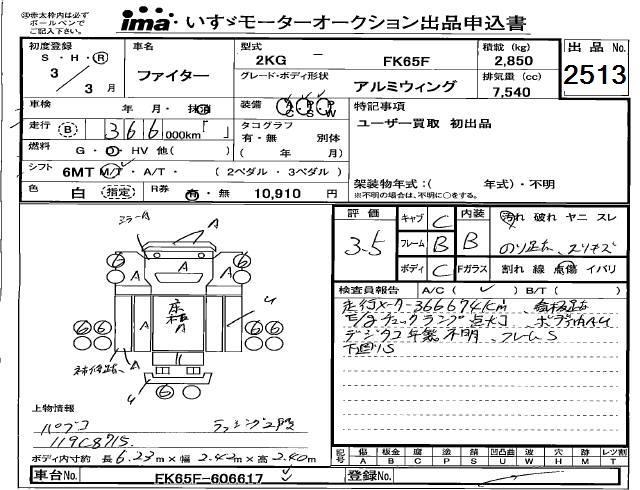 ㊟赤太枠内は必ず
ボールペンで
ご記入下さい。
ima いすゞモーターオークション出品申込書
初度登録
S ・ H ・ R
3
3 月
車名
ファイター
型式
2KG － FK65F
グレード・ボディ形状
アルミウィング
積載 (kg)
2,850
排気量 (cc)
7,540
出品 No.
2513
車検 年 ・ 月 ・ 抹消
装備 A/C P/S P/W
特記事項
ユーザー買取 初出品
走行 B 366 000km
タコグラフ
有 ・ 無 別体
( 年 月)
燃料 G ・ D ・ HV 他( )
シフト 6MT M/T ・ A/T ・ ( 2ペダル ・ 3ペダル )
架装物年式：( 年式)・不明
※不明の場合は、不明に○をする。
色 白 (指定)
R券 有 ・ 無 10,910 円
評価
3-5
キャブ C
フレーム B
ボディ C
内装 B
Fガラス
汚れ 破れ ヤニ スレ
のり跡、スリキズ
割れ 線 点傷 イバリ
ミラーA
6 6
6 6
A A
A A
床板
A
4
66 66
A
補修跡、
4
6
検査員報告 A/C ( ✓ ) B/T ( )
走行メーター366674km、
チェックランプ点灯
デジタコ 不明、フレームS
下廻りS
上物情報
パブコ
119C8715.
ラッシング2段
ボディ内寸約 長 6.23 m × 幅 2.42 m × 高 2.40 m
記号
傷 A
板金 B
腐 C
塗 P
錆 S
凹凸曲 U
波 W
穴 H
跡 M
レツ割 T
車台No. FK65F-606617
登録No.